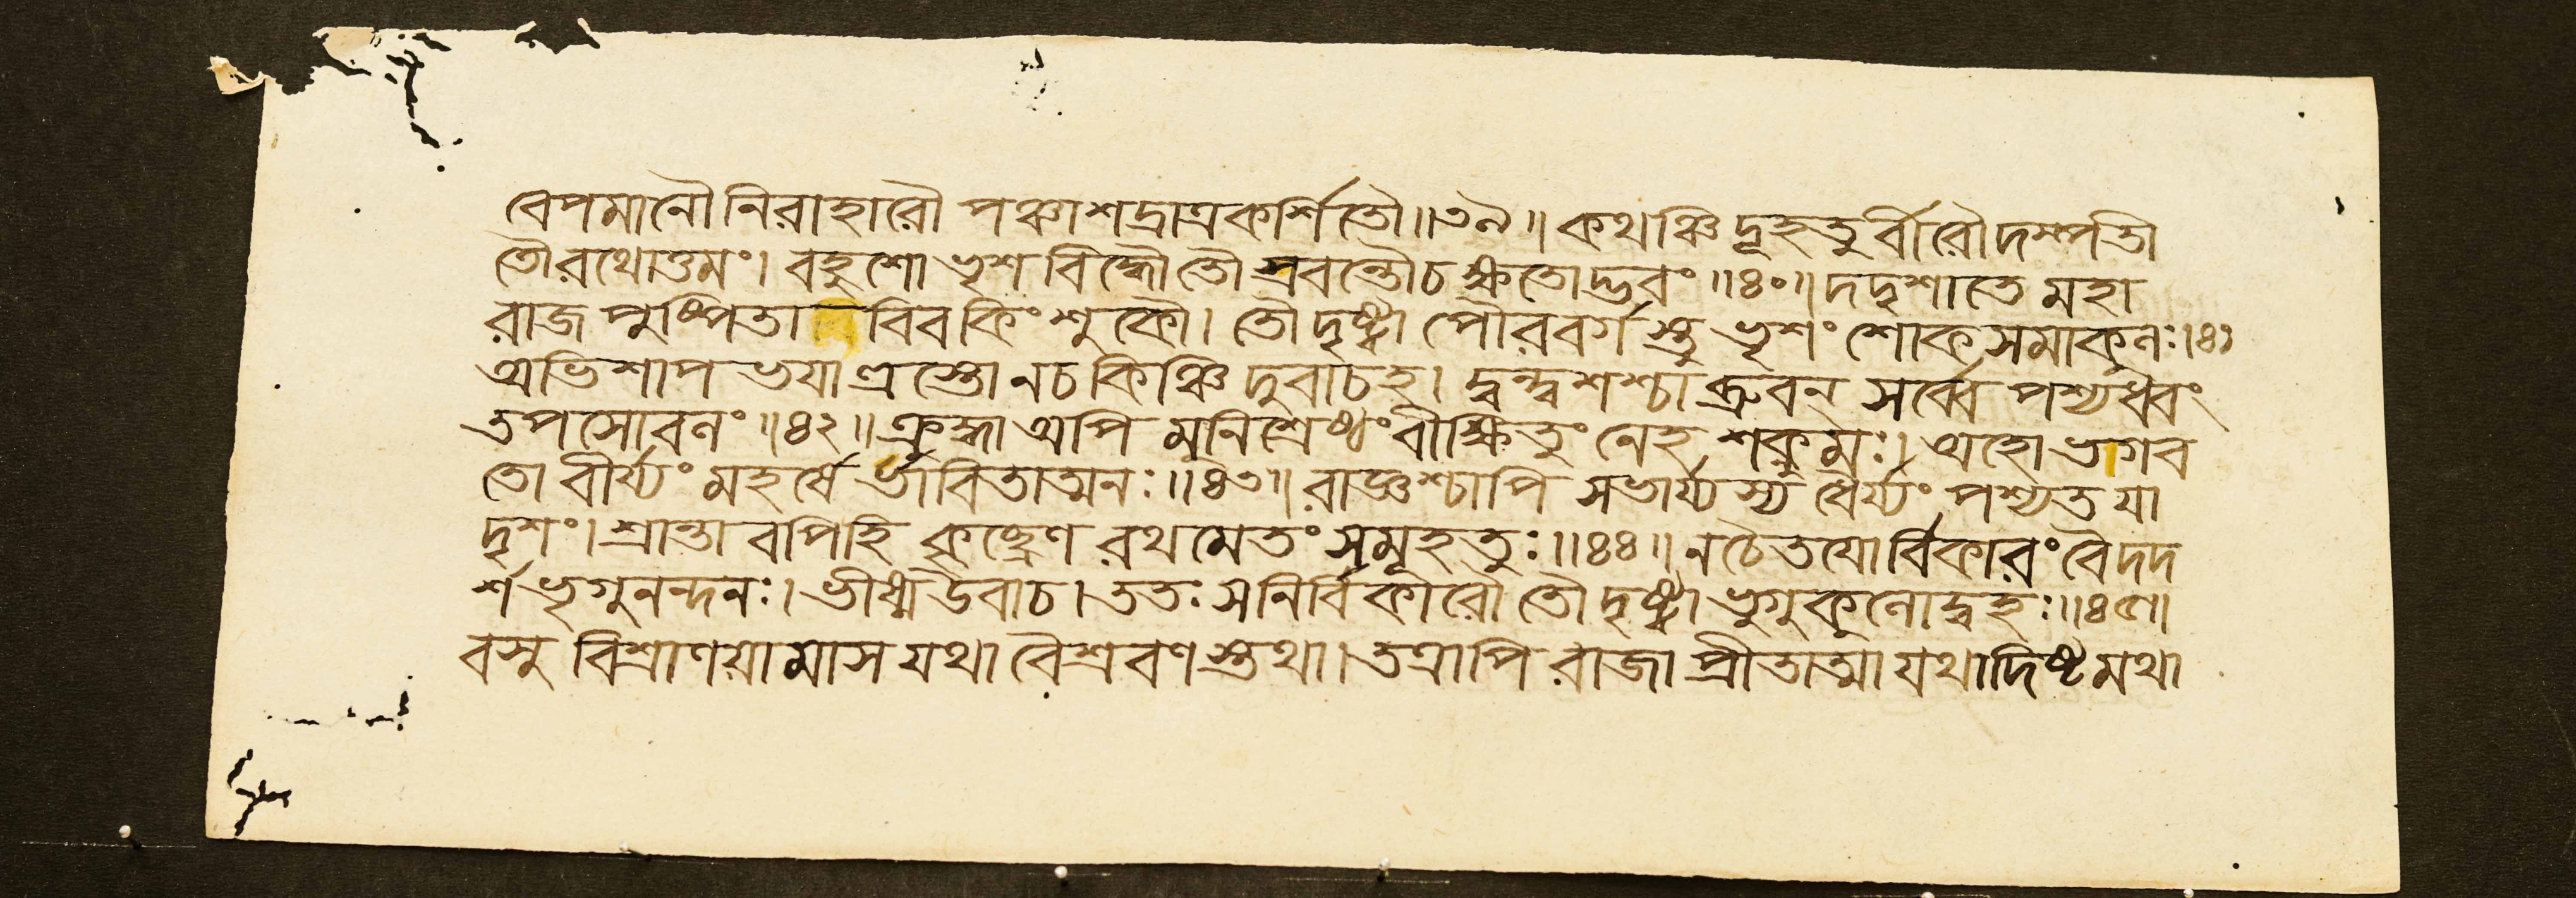 বেপমানৌ নিরাহারৌ পঞ্চাশদ্রাত্রকর্শিতৌ॥৩৯॥ কথঞ্চিদূহতুর্বীরৌ দম্পতী
তৌ রথোত্তমং। বহুশো ভৃশবিদ্ধৌ তৌ স্রবন্তৌ চ ক্ষতোদ্ভবং॥৪০॥ দদৃশাতে মহা
রাজ পুষ্পিতা বিব কিংশুকৌ। তৌ দৃষ্ট্বা পৌরবর্গস্তু ভৃশং শোকসমাকুলঃ।৪১
অভিশাপভয়াত্রস্তো ন চ কিঞ্চিদুবাচ হ। দ্বন্দ্বশশ্চাব্রুবন্ সর্ব্বে পশ্যধ্বং
তপসোবলং॥৪২॥ ক্রুদ্ধা অপি মুনিশ্রেষ্ঠং বীক্ষিতুং নেহ শক্নুমঃ। অহো ভগব
তো বীর্য্যং মহর্ষের্ভাবিতাত্মনঃ॥৪৩॥ রাজ্ঞশ্চাপি সভার্য্যস্য ধৈর্য্যং পশ্যত যা
দৃশং। শ্রান্তাবপি হি কৃচ্ছ্রেণ রথমেতং সমূহতুঃ॥৪৪॥ ন চৈতয়োর্বিকারং বৈ দদ
র্শ ভৃগুনন্দনঃ। ভীষ্ম উবাচ। ততঃ স নির্বিকারৌ তৌ দৃষ্ট্বা ভৃগুকুলোদ্বহঃ॥৪৫॥
বসু বিশ্রাণয়ামাস যথা বৈশ্রবণস্তথা। তত্রাপি রাজা প্রীতাত্মা যথাদিষ্টমথা